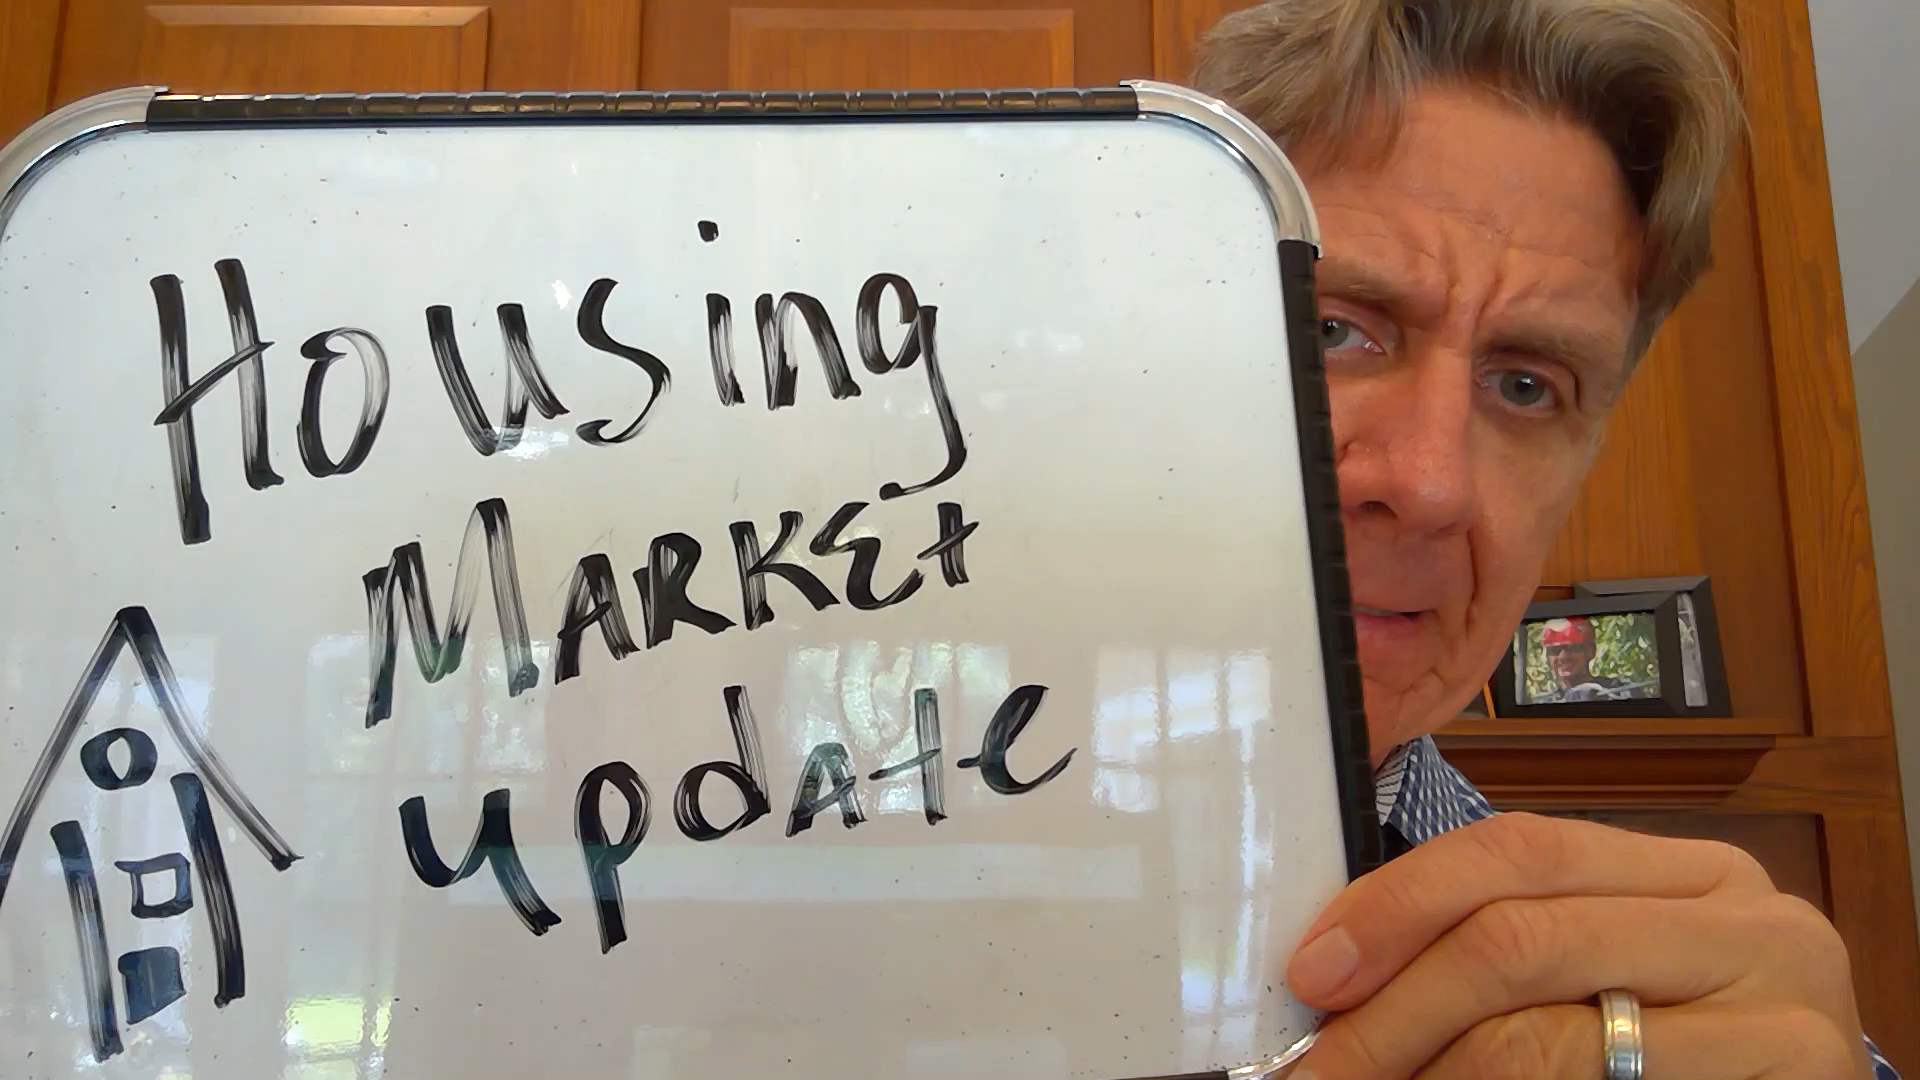 Housing
MARKEt
updAte